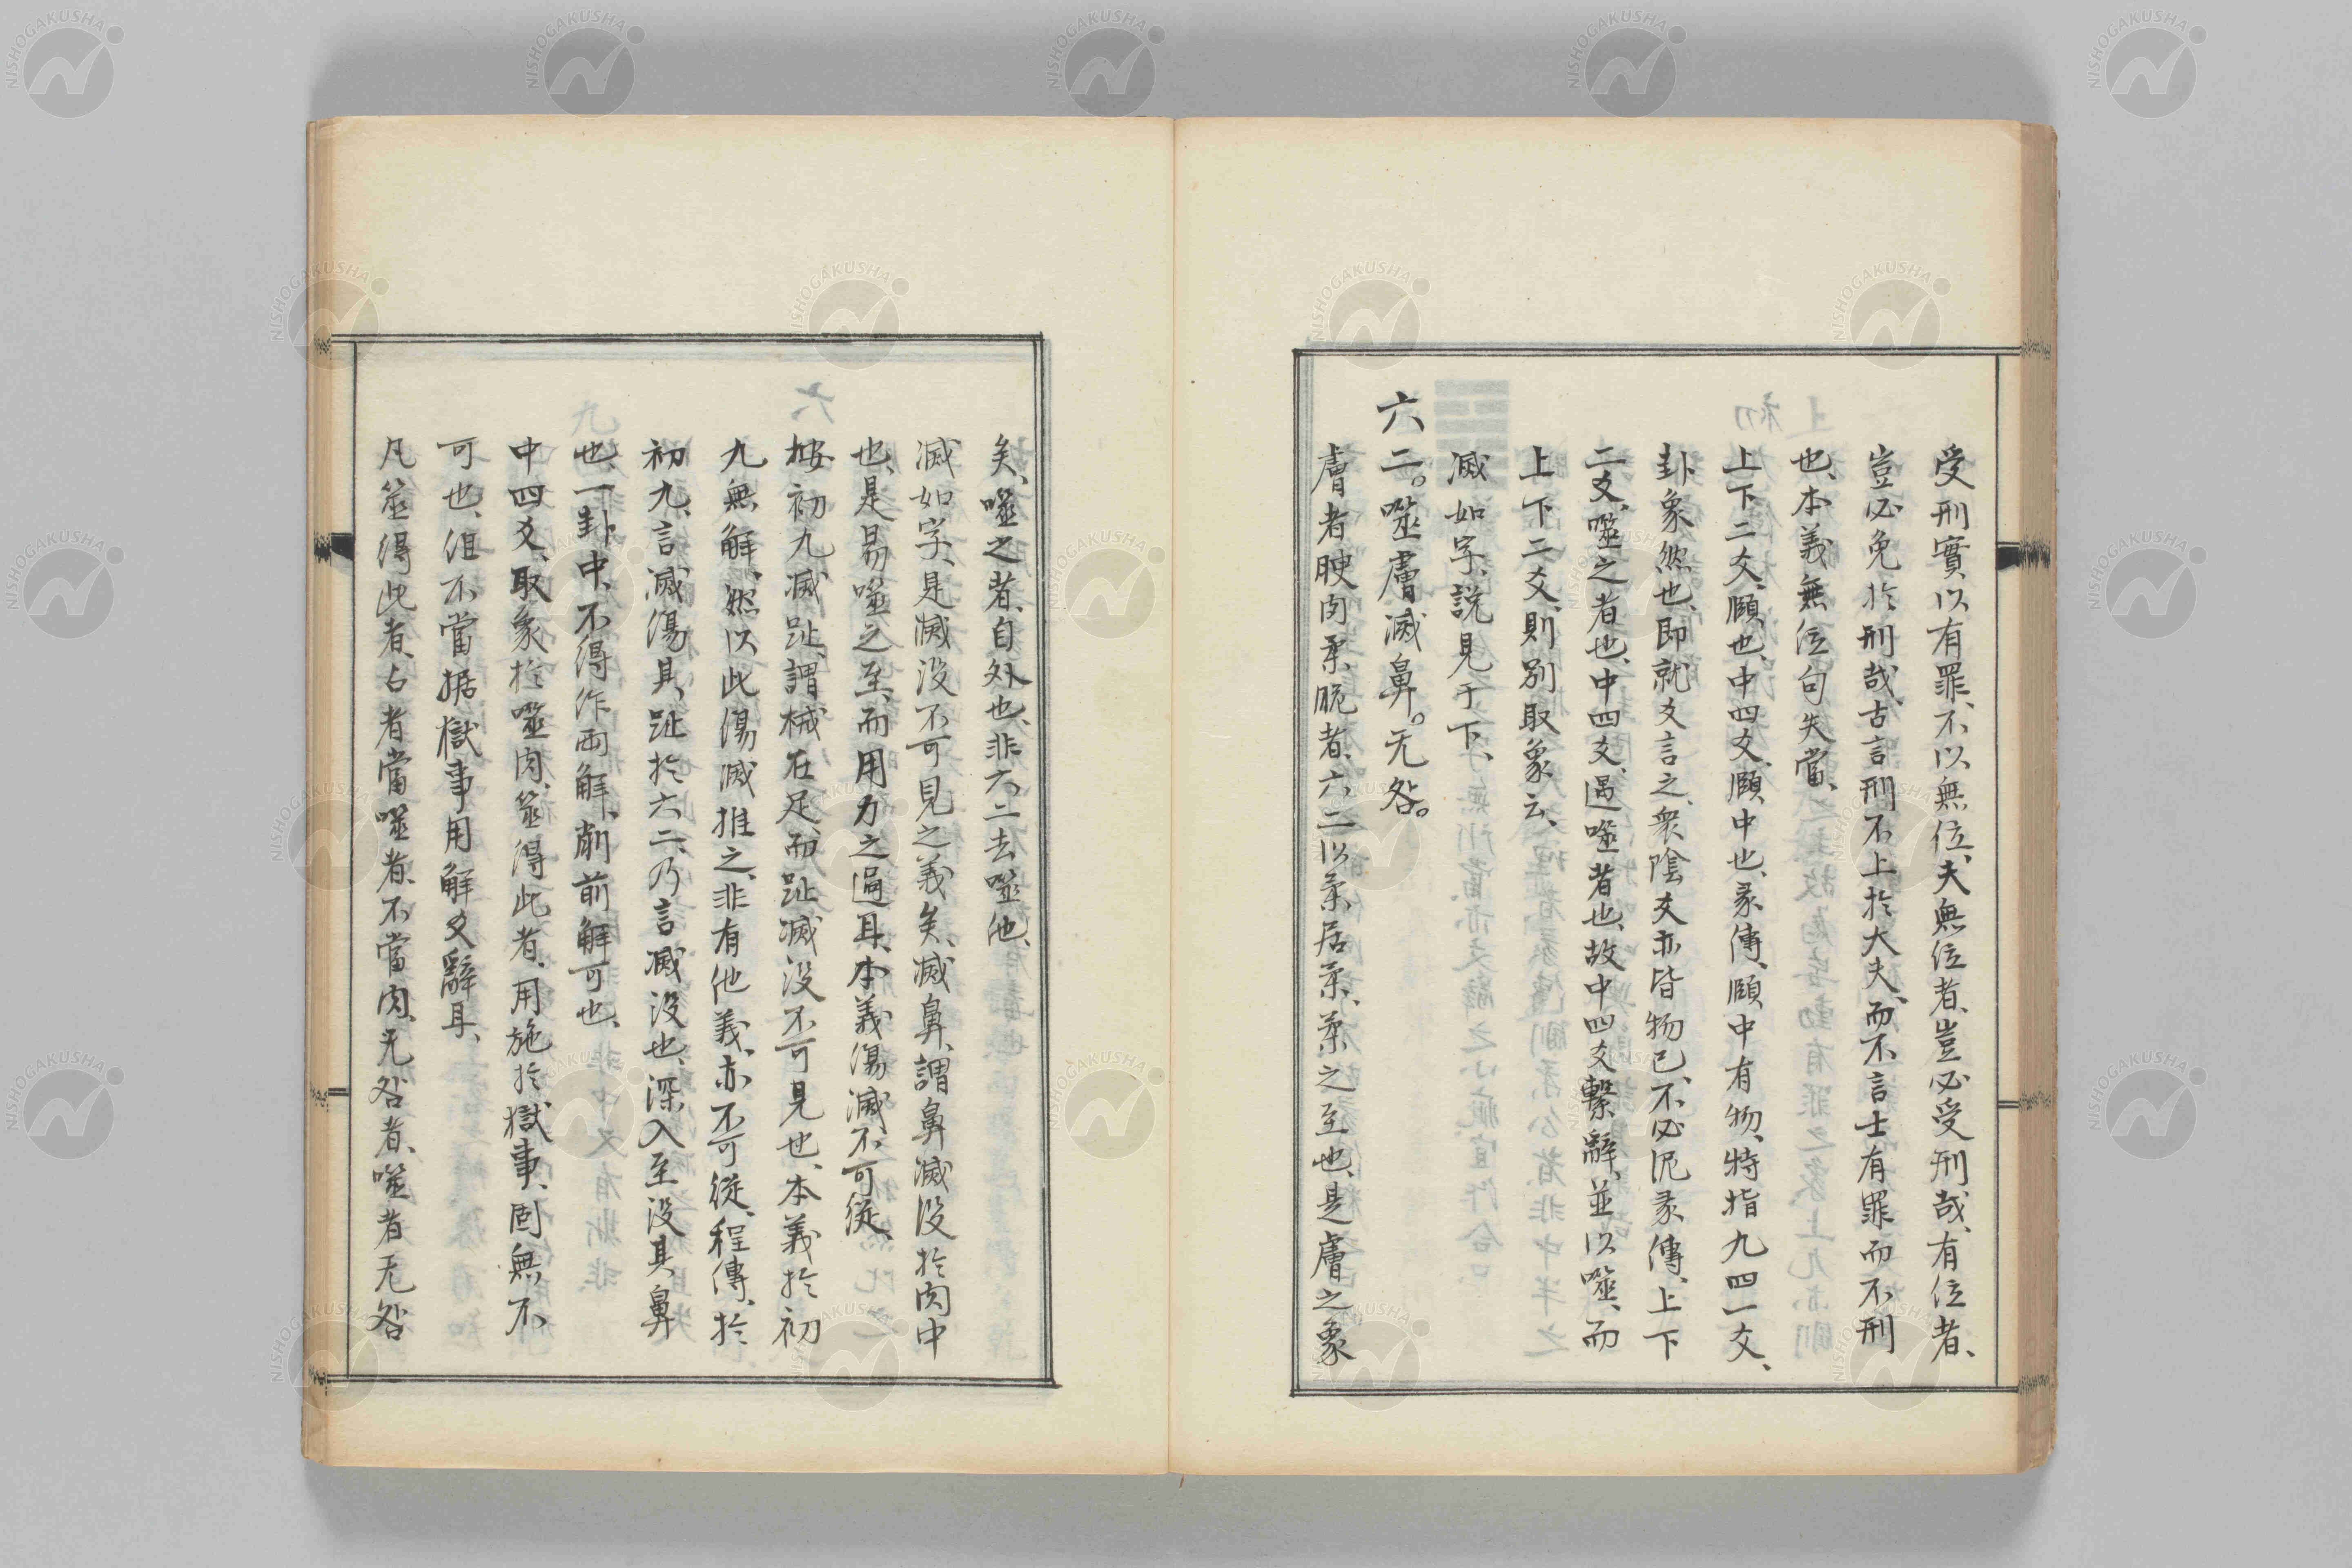 受刑實以有罪、不以無位、夫無位者、豈必受刑哉、有位者、
豈必免於刑哉、古言刑不上於大夫、而不言士有罪而不刑
也、本義無位句失當、
上下二爻、頤也、中四爻、頤中也、彖傳、頤中有物、特指九四一爻、
卦象然也、即就爻言之、衆陰爻亦皆物已、不必泥彖傳、上下
二爻、噬之者也、中四爻、遇噬者也、故中四爻繫辭、並以噬、而
上下二爻、則別取象云、
滅如字、說見于下、
六二。噬膚滅鼻。无咎。
膚者腴肉柔脆者、六二以柔居柔、柔之至也、是膚之象
矣、噬之者、自外也、非六二去噬他、
滅如字、是滅没不可見之義矣、滅鼻、謂鼻滅没於肉中
也、是易噬之至、而用力之過耳、本義傷滅不可從、
按初九滅趾、謂械在足、而趾滅没不可見也、本義於初
九無解、然以此傷滅推之、非有他義、亦不可從、程傳、於
初九、言滅傷其趾、於六二、乃言滅没也、深入至没其鼻
也、一卦中、不得作兩解、削前解可也、
中四爻、取象於噬肉、筮得此者、用施於獄事、固無不
可也、但不當據獄事用解爻辭耳、
凡筮得此者、占者當噬者、不當肉、无咎者、噬者无咎